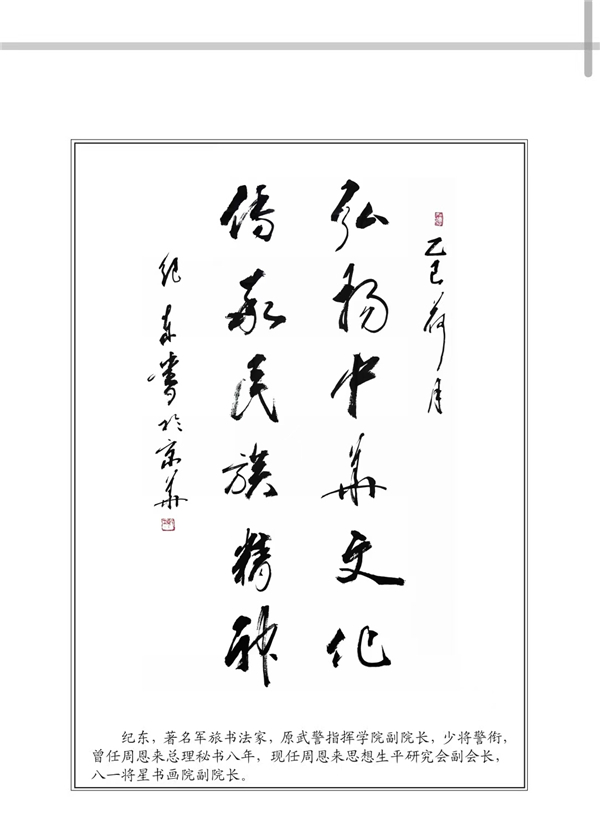 乙巳荷月
弘扬中华文化
传承民族精神
纪东书于京华
纪东，著名军旅书法家，原武警指挥学院副院长，少将警衔，
曾任周恩来总理秘书八年，现任周恩来思想生平研究会副会长，
八一将星书画院副院长。